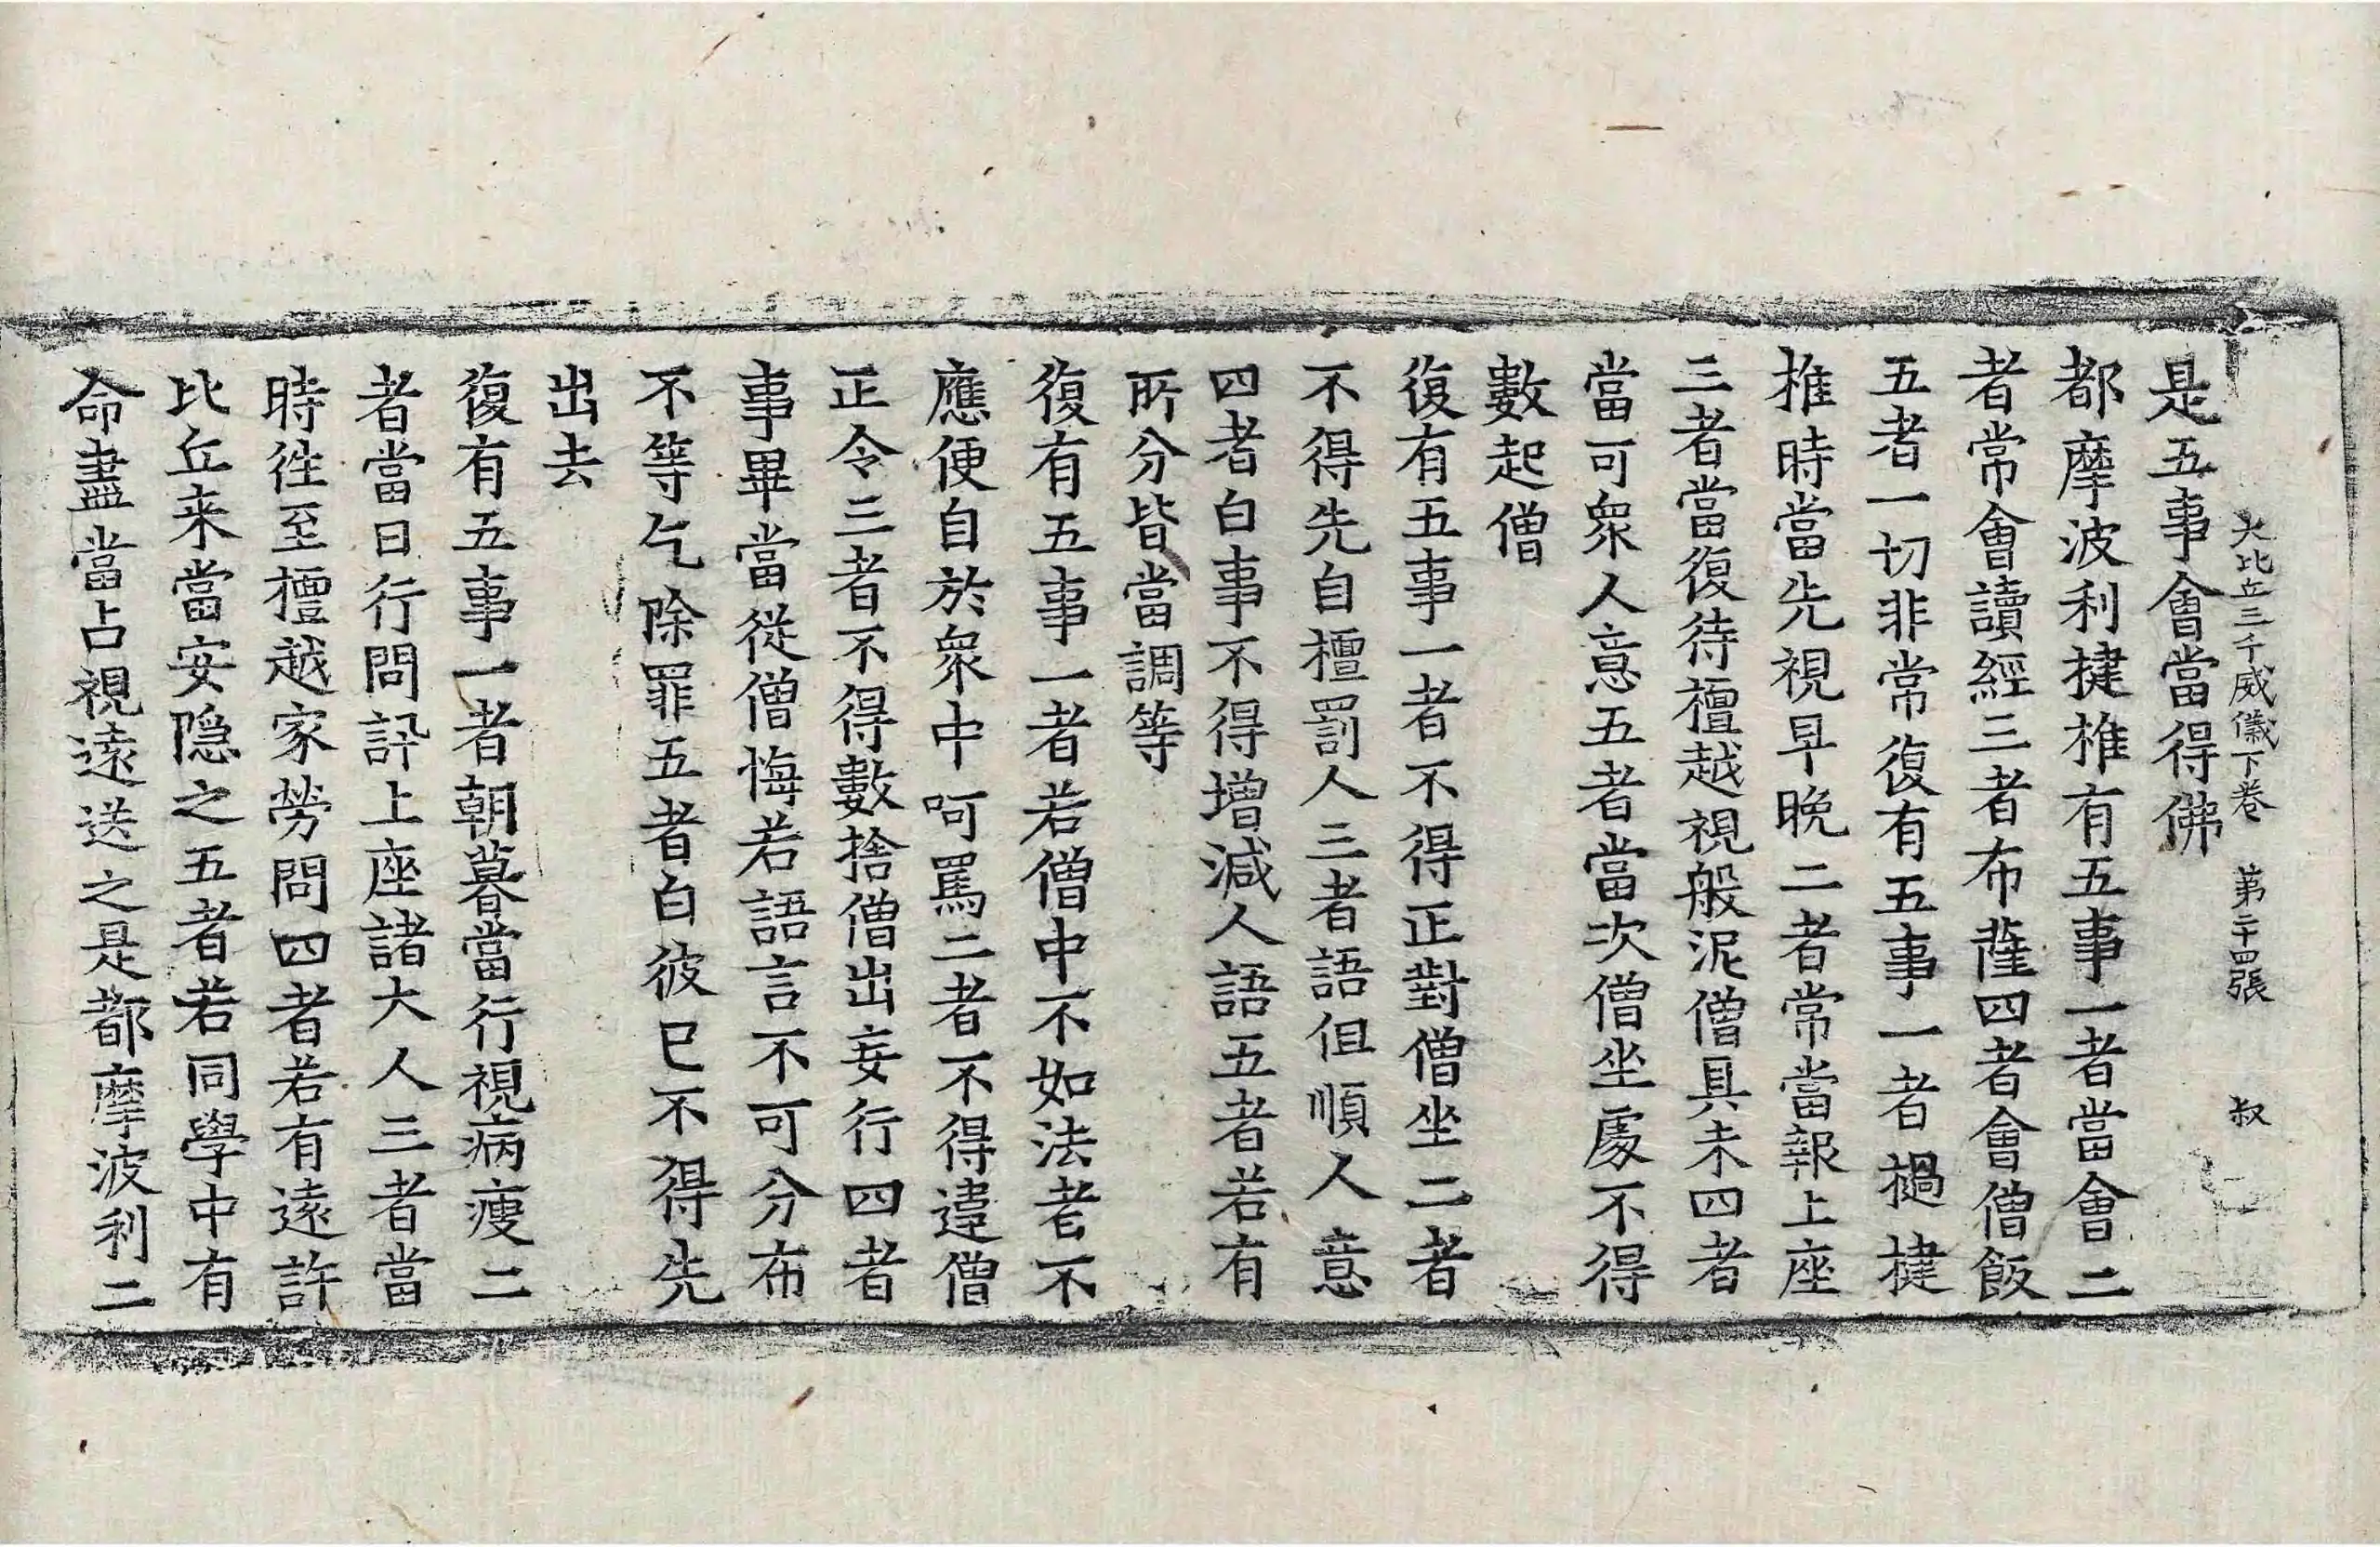 大比丘三千威儀下卷　第二十四張　叔
是五事會當得佛
都摩波利揵椎有五事一者當會二
者常會讀經三者布薩四者會僧飯
五者一切非常復有五事一者撾揵
椎時當先視早晚二者常當報上座
三者當復待檀越視般泥僧具未四者
當可衆人意五者當次僧坐處不得
數起僧
復有五事一者不得正對僧坐二者
不得先自檀罰人三者語伹順人意
四者白事不得增減人語五者若有
所分皆當調等
復有五事一者若僧中不如法者不
應便自於衆中呵罵二者不得違僧
正令三者不得數捨僧出妄行四者
事畢當從僧悔若語言不可分布
不等乞除罪五者白彼已不得先
出去
復有五事一者朝暮當行視病瘦二
者當日行問訊上座諸大人三者當
時徃至檀越家勞問四者若有遠許
比丘来當安隐之五者若同學中有
命盡當占視遠送之是都摩波利二